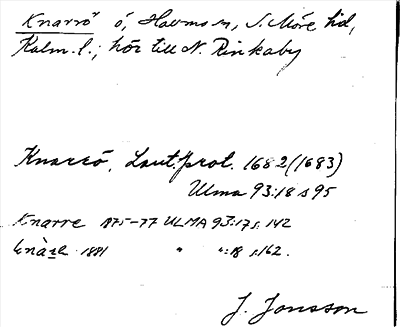 Knarrö ö, Havmo sn, S. Möre hd,
Kalm. l.; hör till N. Rinkaby
Knarrö, Lant.prot. 1682 (1683)
Ulma 93:18 s 95
Knarre 1875-77 ULMA 93:17 s. 142
1881 " ":18 s.162.
J. Jonsson